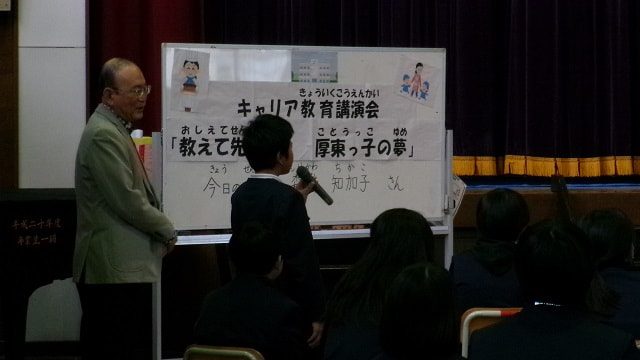 きょういくこうえんかい
キャリア教育講演会
おしえてせん ことうっこ ゆめ
「教えて先 厚東っ子の夢」
きょう せ ちかこ
今日の 知加子 さん
平成二十年度